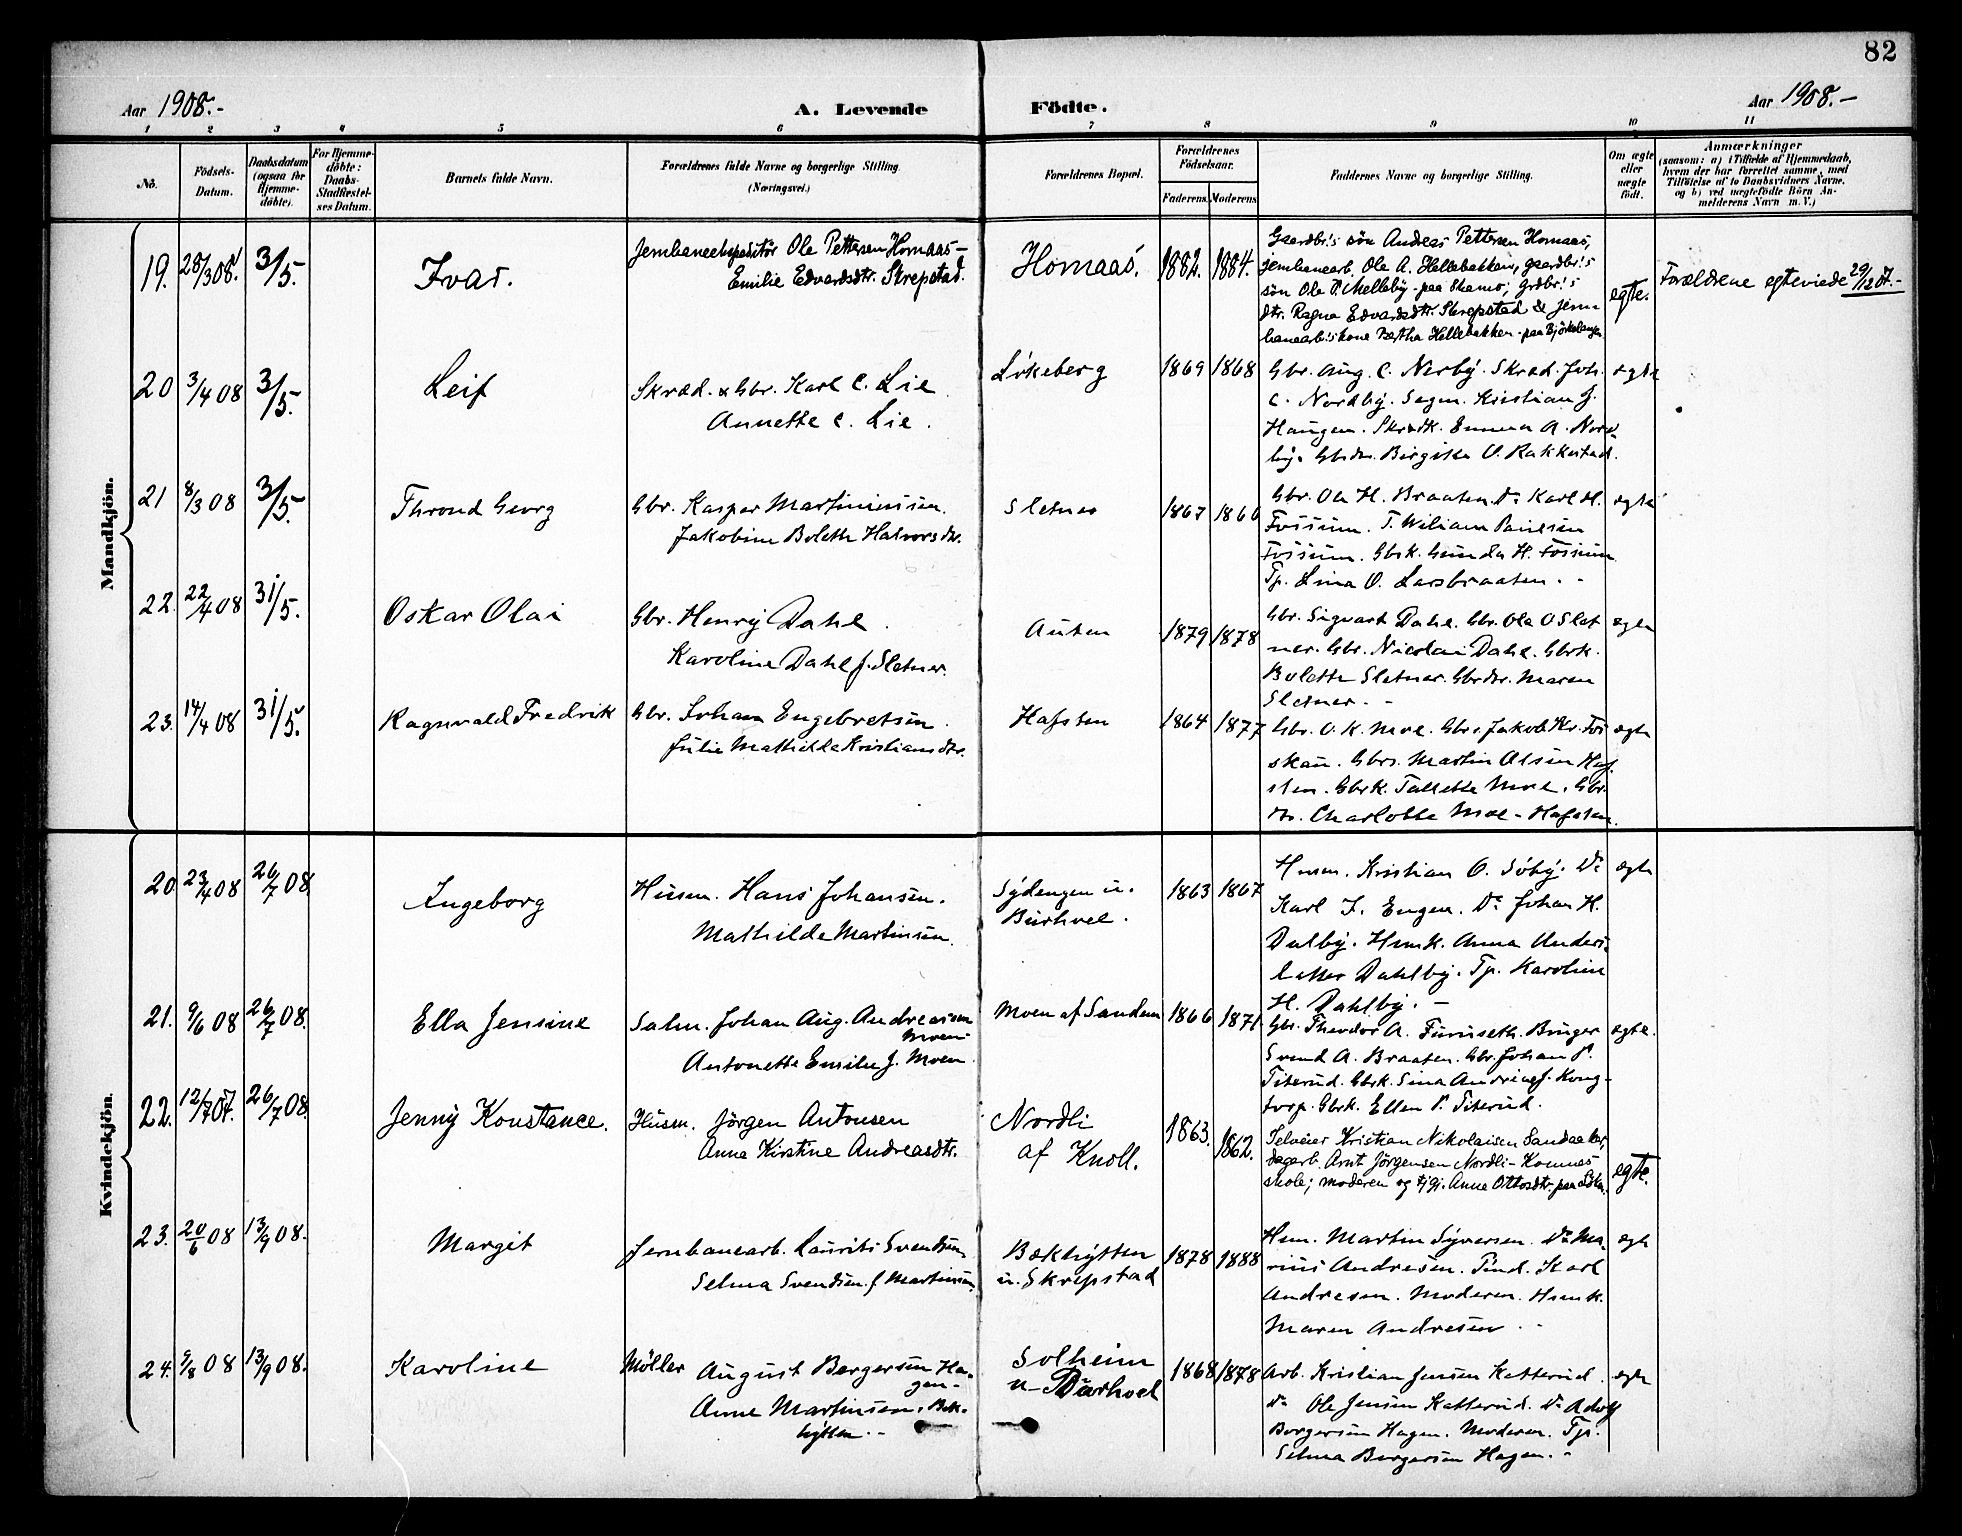 82
Aar 1908.-
A. Levende Födte.
Aar 1908.-
1 2 3 4 5 6 7 8 9 10 11
No.
Födsels-
Datum.
Daabsdatum
(ogsaa for
Hjemme-
döbte).
For Hjemme-
döbte:
Daabs-
Stadfæstel-
ses Datum.
Barnets fulde Navn.
Forældrenes fulde Navne og borgerlige Stilling.
(Næringsvei.)
Forældrenes Bopæl.
Forældrenes
Födselsaar.
Faderens. Moderens.
Faddernes Navne og borgerlige Stilling.
Om ægte
eller
uægte
födt.
Anmærkninger
(saasom: a) i Tilfælde af Hjemmedaab,
hvem der har forrettet samme, med
Tilföielse af to Daabsvidners Navne,
og b) ved uægtefödte Börn An-
melderens Navn m. V.)
Mandkjön.
19. 28/3 08. 3/5. Ivar.
Jernbaneekspeditör Ole Pettersen Homaas-
Emilie Edvardsdtr. Skrepstad.
Homaas. 1882. 1884.
Gaardbr.s sön Andreas Pettersen Homaas,
jernbanearb. Ole A. Hellebekken, gaardbr.s
sön Ole P. Melleby - paa Skamo; Grdbr.s
dtr. Ragna Edvardsdtr. Skrepstad & Jern-
banearb.s kone Bertha Hellebekken - paa Bjørkelangen
egte.
Forældrene egteviede 29/12 07.-
20 3/4 08 3/5. Leif
Skræd. & Gbr. Karl C. Lie
Annette C. Lie.
Lökeberg 1869 1868
Gbr. Aug. C. Nerby. Skræd. Joh.
C. Nordby. Sagm. Kristian J.
Haugen. Skrædk. Emma A. Nord-
by. Gbrdtr. Birgitte O. Rakkestad.
ægte
21 8/3 08 3/5. Thrond Georg
Gbr. Kasper Martiniussen.
Jakobine Bolette Halvorsdtr.
Sletner 1867 1866
Gbr. Ole H. Braaten. Do Karl H.
Fossum. T. Wiliam Paulsen
Fossum. Gbrk. Gunda H. Fossum
Tp. Lina O. Larsbraaten. -
ægte
22. 22/4 08 31/5. Oskar Olai
Gbr. Henry Dahl.
Karoline Dahl f. Sletner.
Auten 1879 1878
Gbr. Sigvart Dahl. Gbr. Ole O Slet
ner. Gbr. Nicolai Dahl. Gbrk.
Bolette Sletner. Gbrdtr. Maren
Sletner. -
ægte
23. 14/4 08 31/5. Ragnvald Fredrik
Gbr. Johan Engebretsen.
Julie Mathilde Kristiansdtr.
Hafsten 1864 1877
Gbr. O. K. Moe. Gbr. Jakob Kr. Fos
skau. Gbrs. Martin Olsen Haf-
sten. Gbrk. Tallette Moe. Gbr.
dtr. Charlotte Moe - Hafsten.
ægte
Kvindekjön.
20 23/4 08 26/7 08 Ingeborg
Husm. Hans Johansen.
Mathilde Martinsen.
Sydengen u.
Burhol. 1863 1867
Husm. Kristian O. Söby. Do
Karl J. Engen. Do Johan H.
Dalby. Hsmk. Anna Anders-
datter Dahlby. Tp. Karoline
H. Dahlby. -
ægte
21. 9/6 08 26/7 08. Ella Jensine
Salm. Johan Aug. Andreassen
Moen
Antonette Emilie J. Moen.
Moen af Sandem 1866 1871
Gbr. Theodor A. Furuseth. Bruger
Svend A. Braaten. Gbr. Johan P.
Titerud. Gbrk. Sina Andrine f. Kong-
torp. Gbrk. Ellen P. Titerud.
ægte.
22. 12/7 07. 26/7 08. Jenny Konstance.
Husm. Jörgen Antonsen
Anna Kirstine Andreasdtr.
Nordli
af Knoll. 1863. 1862.
Selveier Kristian Nikolaisen Sandaaker,
dagarb. Arnt Jörgensen Nordli - Komnes
skole; moderen og tjgj. Anne Ottosdtr. paa
egte.
23. 20/6 08 13/9 08. Margit
Jernbanearb. Laurits Svendsen
Selma Svendsen f. Martinsen.
Bækhytten
u. Skrepstad 1878 1888
Hsm. Martin Syversen. Do Ma-
rius Andresen. Pind. Karl
Andresen. Moderen. Hsmk.
Maren Andresen. -
ægte
24. 9/8 08 13/9 08. Karoline
Möller August Bergersen Ha-
gen-
Anne Martinsen. Bæk-
hytten. -
Solheim
u- Burhol 1868 1878
Arb. Kristian Jensen Katterud.
Do Ole Jensen Katterud. Do Adolf
Borgersen Hagen. Moderen. Tp.
Selma Bergersen Hagen. -
ægte